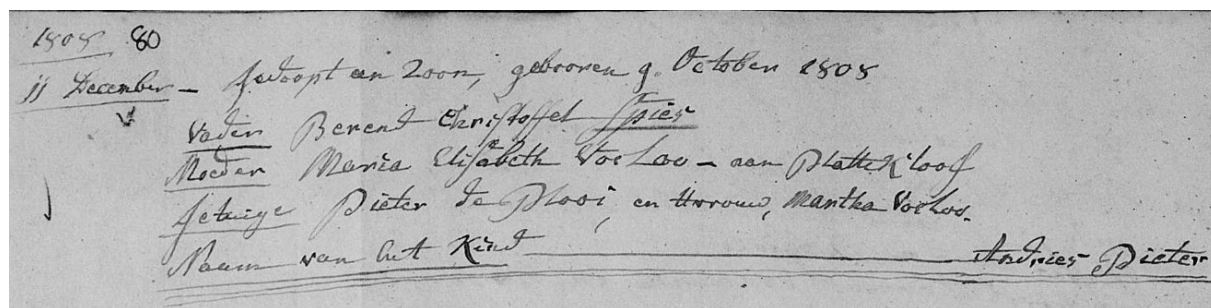 1808 80
11 December – Gedoopt een Zoon, gebooren 9. October 1808
Vader Berend Christoffel Spies
Moeder Maria Elisabeth Vosloo – aan Platte Kloof
Getuige Pieter de Plooi, en Huvrouw, Martha Vosloo.
Naam van het Kind Andries Pieter